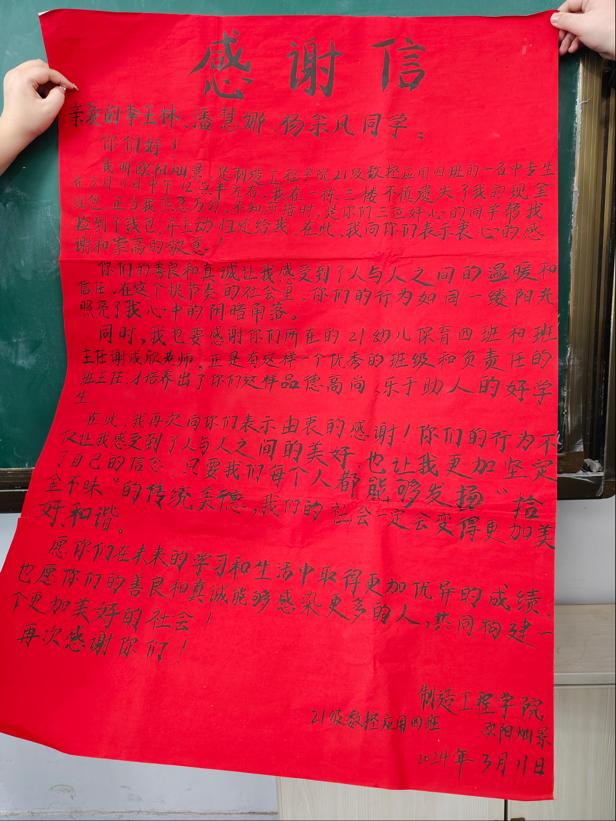 感谢信
亲爱的李玉林、潘慧娜、杨朵凡同学：
你们好！
我叫欧阳灿景，是制造工程学院21级数控应用四班的一名中专生
在3月11日中午12点半左右，我在一栋三楼不慎遗失了我的现金
钱包。正当我焦急万分、不知所措时，是你们三位好心的同学帮我
捡到了钱包，并主动归还给我。在此，我向你们表示衷心的感
谢和崇高的敬意！
你们的善良和真诚让我感受到了人与人之间的温暖和
信任。在这个快节奏的社会里，你们的行为如同一缕阳光
照亮了我心中的阴暗角落。
同时，我也要感谢你们所在的21幼儿保育四班和班
主任谢老师。正是有这样一个优秀的班级和负责任的
班主任，才培养出了你们这样品德高尚、乐于助人的好学
生
在此，我再次向你们表示由衷的感谢！你们的行为不
仅让我感受到了人与人之间的美好，也让我更加坚定
了自己的信念：只要我们每个人都能够发扬“拾
金不昧”的传统美德，我们的社会一定会变得更加美
好和谐。
愿你们在未来的学习和生活中取得更加优异的成绩、
也愿你们的善良和真诚能够感染更多的人，共同构建一
个更加美好的社会！
再次感谢你们！
制造工程学院
21级数控应用四班 欧阳灿景
2024年3月11日